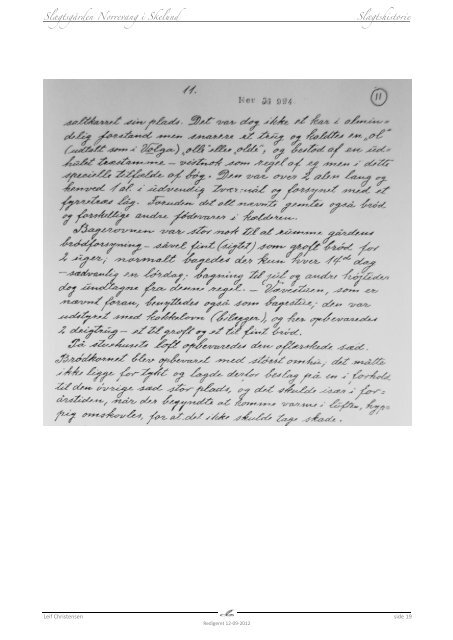 Slægtsgården Norrevang i Skelund Slægtshistorie
11.
Nov 36 994
11
saltkarret sin plads. Det var dog ikke et kar i almin=
delig forstand men snarere et trug og kaldtes en „ol"
(udtalt som i Volga) „olk" eller „olde", og bestod af en ud=
hulet træstamme – vistnok som regel af eg men i dette
specielle tilfælde af bøg. Den var over 2 alen lang og
henved 1 al. i udvendig tværmål og forsynet med et
fyrretræs låg. Foruden det alt nævnte gemtes også brød
og forskellige andre fødevarer i kælderen.
Bagerovnen var stor nok til at rumme gårdens
brødforsyning – såvel fint (sigt) som groft brød for
2 uger; normalt bagedes der kun hver 14d dag
– sædvanlig en lördag; bagning til jul og andre højtider
dog undtagne fra denne regel. – Vævestuen, som er
nævnt foran, benyttedes også som bagestue; den var
udstyret med kakkelovn (bilægger), og her opbevaredes
2 dejgtrug – et til groft og et til fint brød.
På stuehusets loft opbevaredes den aftærskede sæd.
Brødkornet blev opbevaret med störst omhu, det måtte
ikke ligge for tykt og lagde derfor beslag på en i forhold
til den övrige sæd stor plads, og det skulde især i for=
årstiden, når der begyndte at komme varme i luften, hyp=
pig omskovles, for at det ikke skulde tage skade.
Leif Christensen side 19
Redigeret 12-09-2012